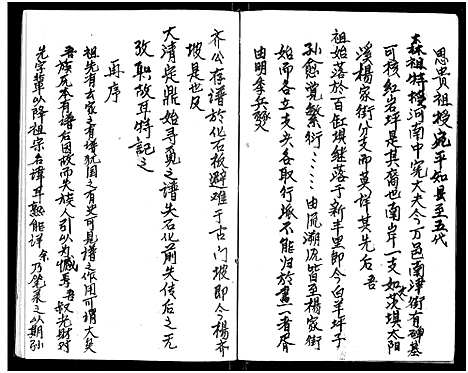 思贵祖授宛平知县至五代
森祖特授河南中宪大夫今万邑南津街有碑基
可核红岩坪是其裔也南岸一支如茨堪太阳
溪杨家街分支而莫详其先后吾
祖始落於百缸堪继落于新丰里即今白羊坪子
孙愈觉繁衍……由流溯源皆至杨家街
始而各立支夹各取行派不能归於画一者胥
由明季兵燹
齐公存谱於化石板避难于古门坡即今杨齐
坡是也及
大清定鼎始寻觅之谱失石化前失传后之无
考职故耳特记之
再序
祖先有云家之有谱犹国之有史可见谱之作用可谓大矣
吾族氏本有谱后因故而失族人引以为憾吾叔光财对
先字辈以降祖宗名讳耳熟能详余乃笔录之以期孙